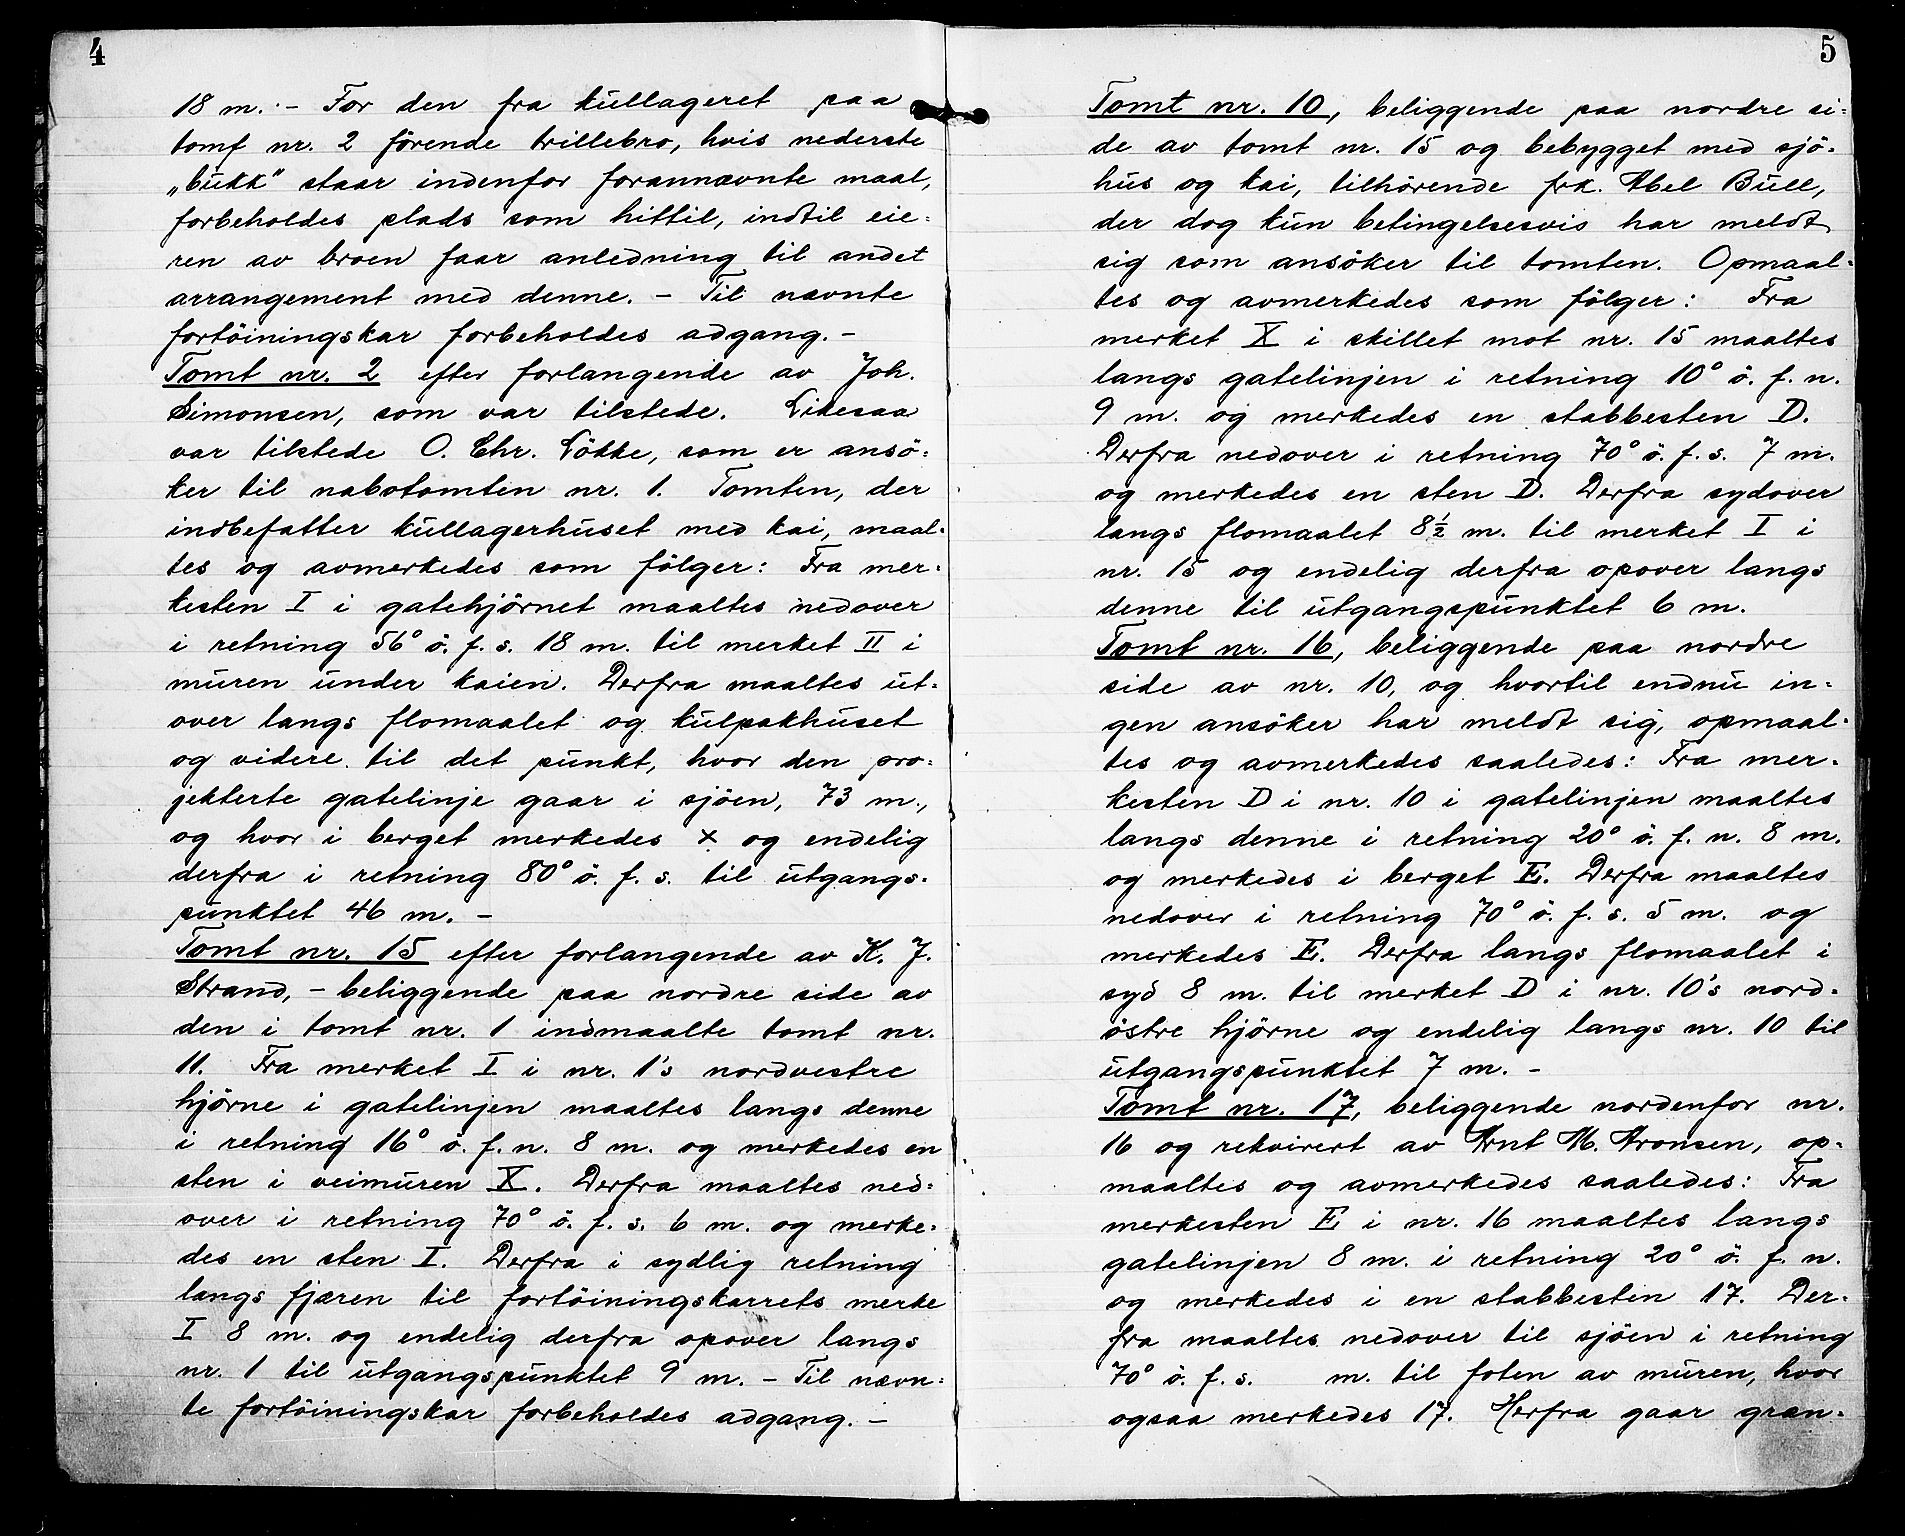 4
18 m. - For den fra kullageret paa
tomf nr. 2 förende trillebro, hvis nederste
„bukk" staar indenfor forannævnte maal,
forbeholdes plads som hittil, indtil eie=
ren av broen faar anledning til andet
arrangement med denne. - Til nævnte
fortöiningskar forbeholdes adgang. -
Tomt nr. 2 efter forlangende av Joh.
Simonsen, som var tilstede. Likesaa
var tilstede O. Chr. Lökke, som er ansö=
ker til nabotomten nr. 1. Tomten, der
indbefatter kullagerhuset med kai, maal=
tes og avmerkedes som fölger: Fra mer=
kesten I i gatehjörnet maaltes nedover
i retning 56° ö. f. s. 18 m. til merket II i
muren under kaien. Derfra maaltes ut=
over langs flomaalet og kulpakhuset
og videre til det punkt, hvor den pro=
jekterte gatelinje gaar i sjöen, 73 m.,
og hvor i berget merkedes x og endelig
derfra i retning 80° ö. f. s. til utgangs=
punktet 46 m. -
Tomt nr. 15 efter forlangende av K. J.
Strand, - beliggende paa nordre side av
den i tomt nr. 1 indmaalte tomt nr.
11. Fra merket I i nr. 1's nordvestre
hjörne i gatelinjen maaltes langs denne
i retning 16° ö. f. n. 8 m. og merkedes en
sten i veimuren X. Derfra maaltes ned=
over i retning 70° ö. f. s. 6 m. og merke=
des en sten I. Derfra i sydlig retning
langs fjæren til fortöiningskarrets merke
I 8 m. og endelig derfra opover langs
nr. 1 til utgangspunktet 9 m. - Til nævn=
te fortöiningskar forbeholdes adgang. -
5
Tomt nr. 10, beliggende paa nordre si=
de av tomt nr. 15 og bebygget med sjö=
hus og kai, tilhörende frk. Abel Bull,
der dog kun betingelsesvis har meldt
sig som ansöker til tomten. Opmaal=
tes og avmerkedes som fölger: Fra
merket X i skillet mot nr. 15 maaltes
langs gatelinjen i retning 10° ö. f. n.
9 m. og merkedes en stabbesten D.
Derfra nedover i retning 70° ö. f. s. 7 m.
og merkedes en sten D. Derfra sydover
langs flomaalet 8½ m. til merket I i
nr. 15 og endelig derfra opover langs
denne til utgangspunktet 6 m.
Tomt nr. 16, beliggende paa nordre
side av nr. 10, og hvortil endnu in=
gen ansöker har meldt sig, opmaal=
tes og avmerkedes saaledes: Fra mer=
kesten D i nr. 10 i gatelinjen maaltes
langs denne i retning 20° ö. f. n. 8 m.
og merkedes i berget E. Derfra maaltes
nedover i retning 70° ö. f. s. 5 m. og
merkedes E. Derfra langs flomaalet i
syd 8 m. til merket D i nr. 10's nord=
östre hjörne og endelig langs nr. 10 til
utgangspunktet 7 m. -
Tomt nr. 17, beliggende nordenfor nr.
16 og rekvirert av Arnt M. Aronsen, op=
maaltes og avmerkedes saaledes: Fra
merkesten E i nr. 16 maaltes langs
gatelinjen 8 m. i retning 20° ö. f. n.
og merkedes i en stabbesten 17. Der=
fra maaltes nedover til sjöen i retning
70° ö. f. s. m. til foten av muren, hvor
ogsaa merkedes 17. Herfra gaar græn=